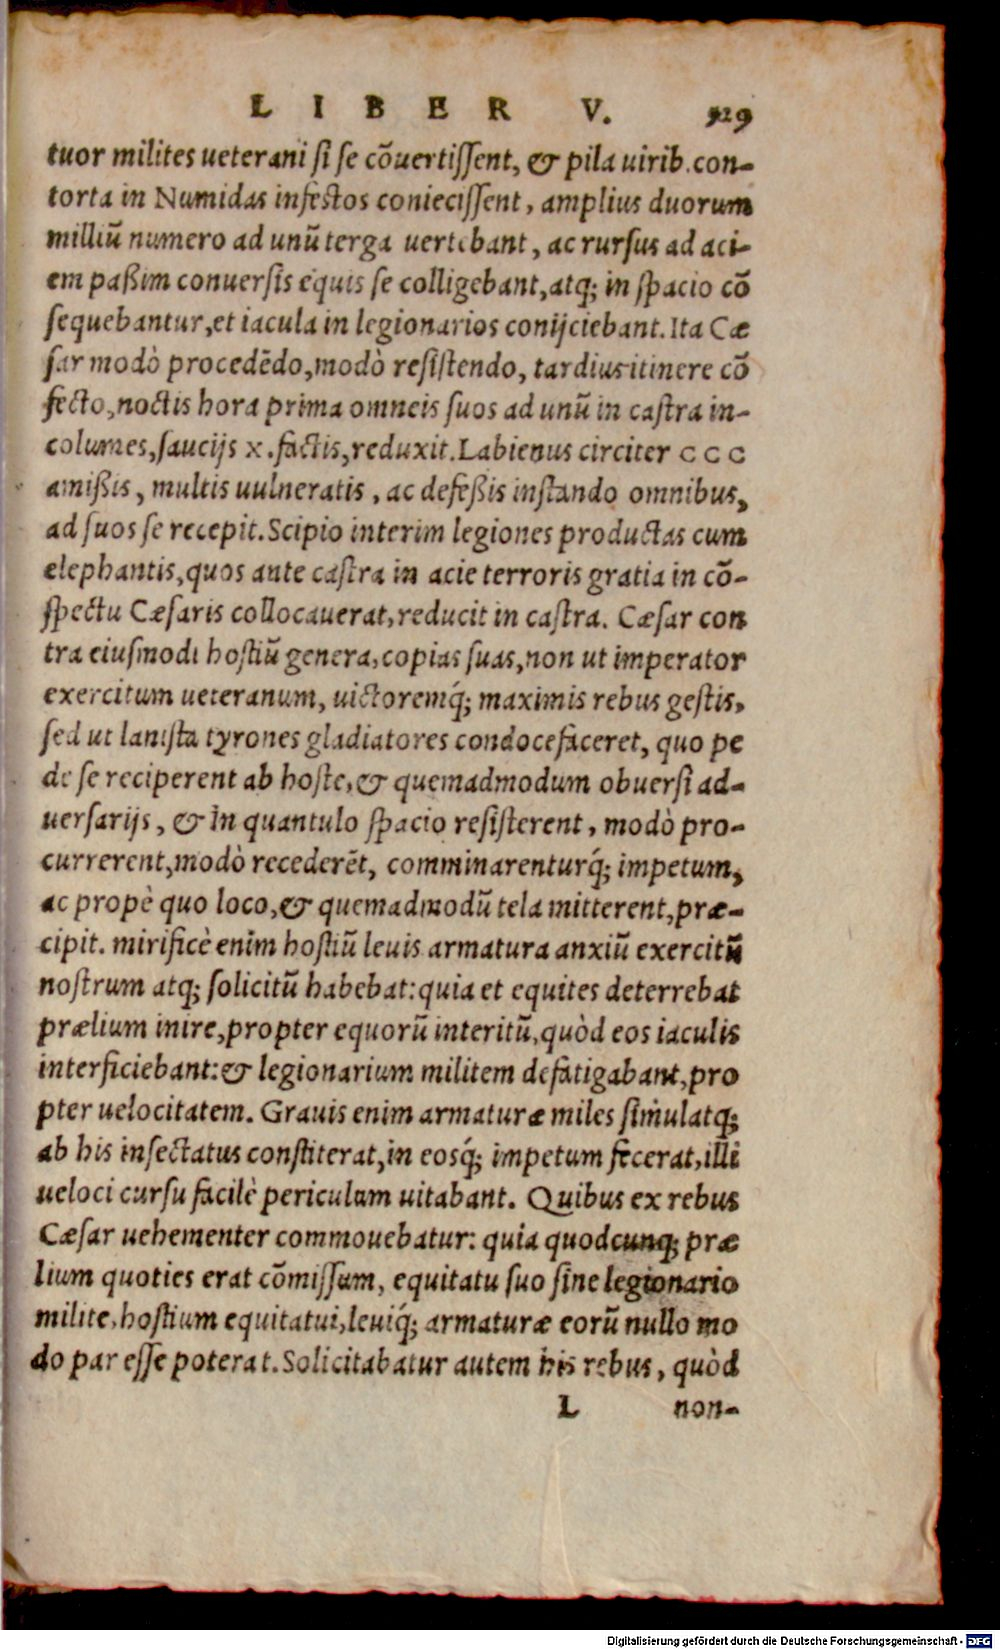 LIBER V. 929
tuor milites ueterani si se cōuertissent, & pila uirib. con-
torta in Numidas infestos coniecissent, amplius duorum
milliū numero ad unū terga uertebant, ac rursus ad aci-
em paßim conuersis equis se colligebant, atq; in spacio cō
sequebantur, et iacula in legionarios conijciebant. Ita Cæ
sar modò procedēdo, modò resistendo, tardius itinere cō
fecto, noctis hora prima omneis suos ad unū in castra in-
columes, saucijs x. factis, reduxit. Labienus circiter CCC
amißis, multis uulneratis, ac defeßis instando omnibus,
ad suos se recepit. Scipio interim legiones productas cum
elephantis, quos ante castra in acie terroris gratia in cō-
spectu Cæsaris collocauerat, reducit in castra. Cæsar con
tra eiusmodi hostiū genera, copias suas, non ut imperator
exercitum ueteranum, uictoremq́; maximis rebus gestis,
sed ut lanista tyrones gladiatores condocefaceret, quo pe
de se reciperent ab hoste, & quemadmodum obuersi ad-
uersarijs, & in quantulo spacio resisterent, modò pro-
currerent, modò recederēt, comminarenturq́; impetum,
ac propè quo loco, & quemadmodū tela mitterent, præ-
cipit. mirificè enim hostiū leuis armatura anxiū exercitū
nostrum atq; solicitū habebat: quia et equites deterrebat
prælium inire, propter equorū interitū, quòd eos iaculis
interficiebant: & legionarium militem defatigabant, pro
pter uelocitatem. Grauis enim armaturæ miles simulatq;
ab his insectatus constiterat, in eosq́; impetum fecerat, illi
ueloci cursu facilè periculum uitabant. Quibus ex rebus
Cæsar uehementer commouebatur: quia quodcunq; præ
lium quoties erat cōmissum, equitatu suo sine legionario
milite, hostium equitatui, leuiq́; armaturæ eorū nullo mo
do par esse poterat. Solicitabatur autem his rebus, quòd
L non-
Digitalisierung gefördert durch die Deutsche Forschungsgemeinschaft - DFG